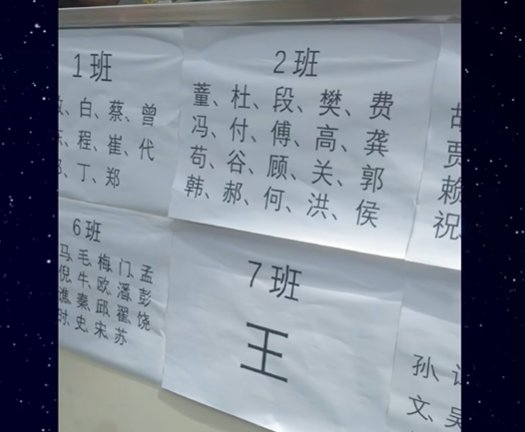 1班
白、蔡、曾
程、崔、代
丁、郑
2班
董、杜、段、樊、费
冯、付、傅、高、龚
苟、谷、顾、关、郭
韩、郝、何、洪、侯
贾
赖
祝
6班
马、毛、梅、门、孟
倪、牛、欧、潘、彭
谯、秦、邱、翟、饶
时、史、宋、苏
7班
王
孙、
文、吴